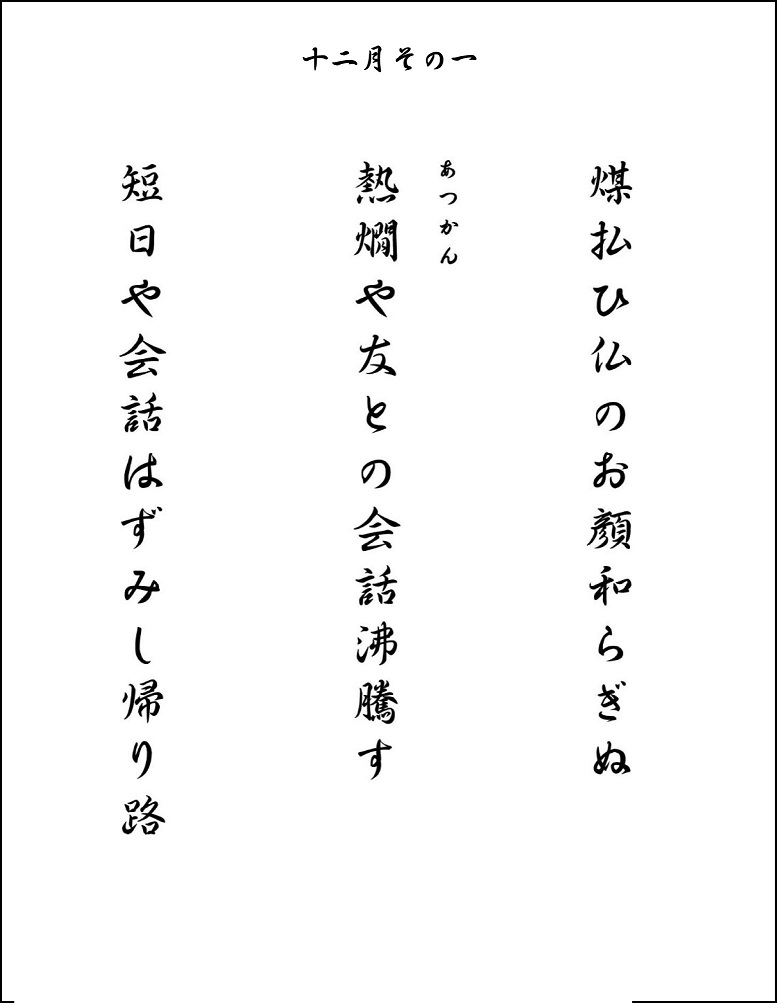 十二月その一
煤払ひ仏のお顔和らぎぬ
あつかん
熱燗や友との会話沸騰す
短日や会話はずみし帰り路